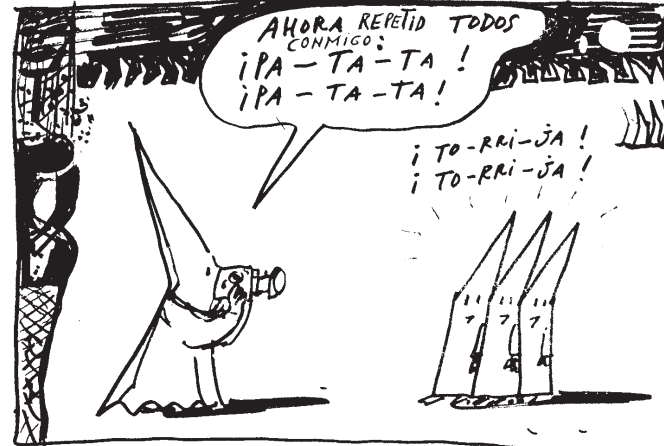 AHORA REPETID TODOS
CONMIGO:
¡PA - TA - TA !
¡PA - TA - TA!
¡ TO-RRI-JA !
¡ TO-RRI-JA !